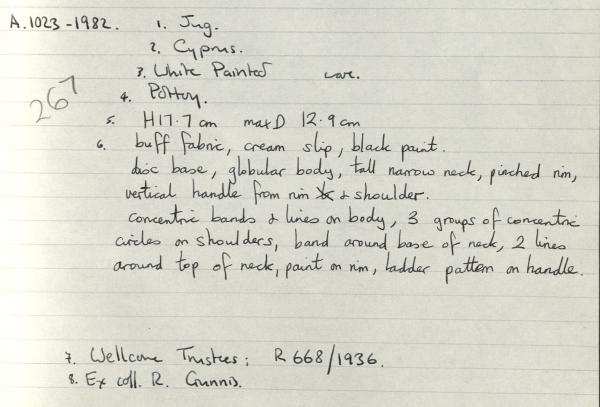 A.1023-1982. 1. Jug.
2. Cyprus.
3. White Painted ware.
267
4. Pottery.
5. H 17.7 cm max D 12.9 cm
6. buff fabric, cream slip, black paint.
disc base, globular body, tall narrow neck, pinched rim,
vertical handle from rim to shoulder.
concentric bands & lines on body, 3 groups of concentric
circles on shoulders, band around base of neck, 2 lines
around top of neck, paint on rim, ladder pattern on handle.
7. Wellcome Trustees; R 668/1936.
8. Ex coll. R. Gunnis.